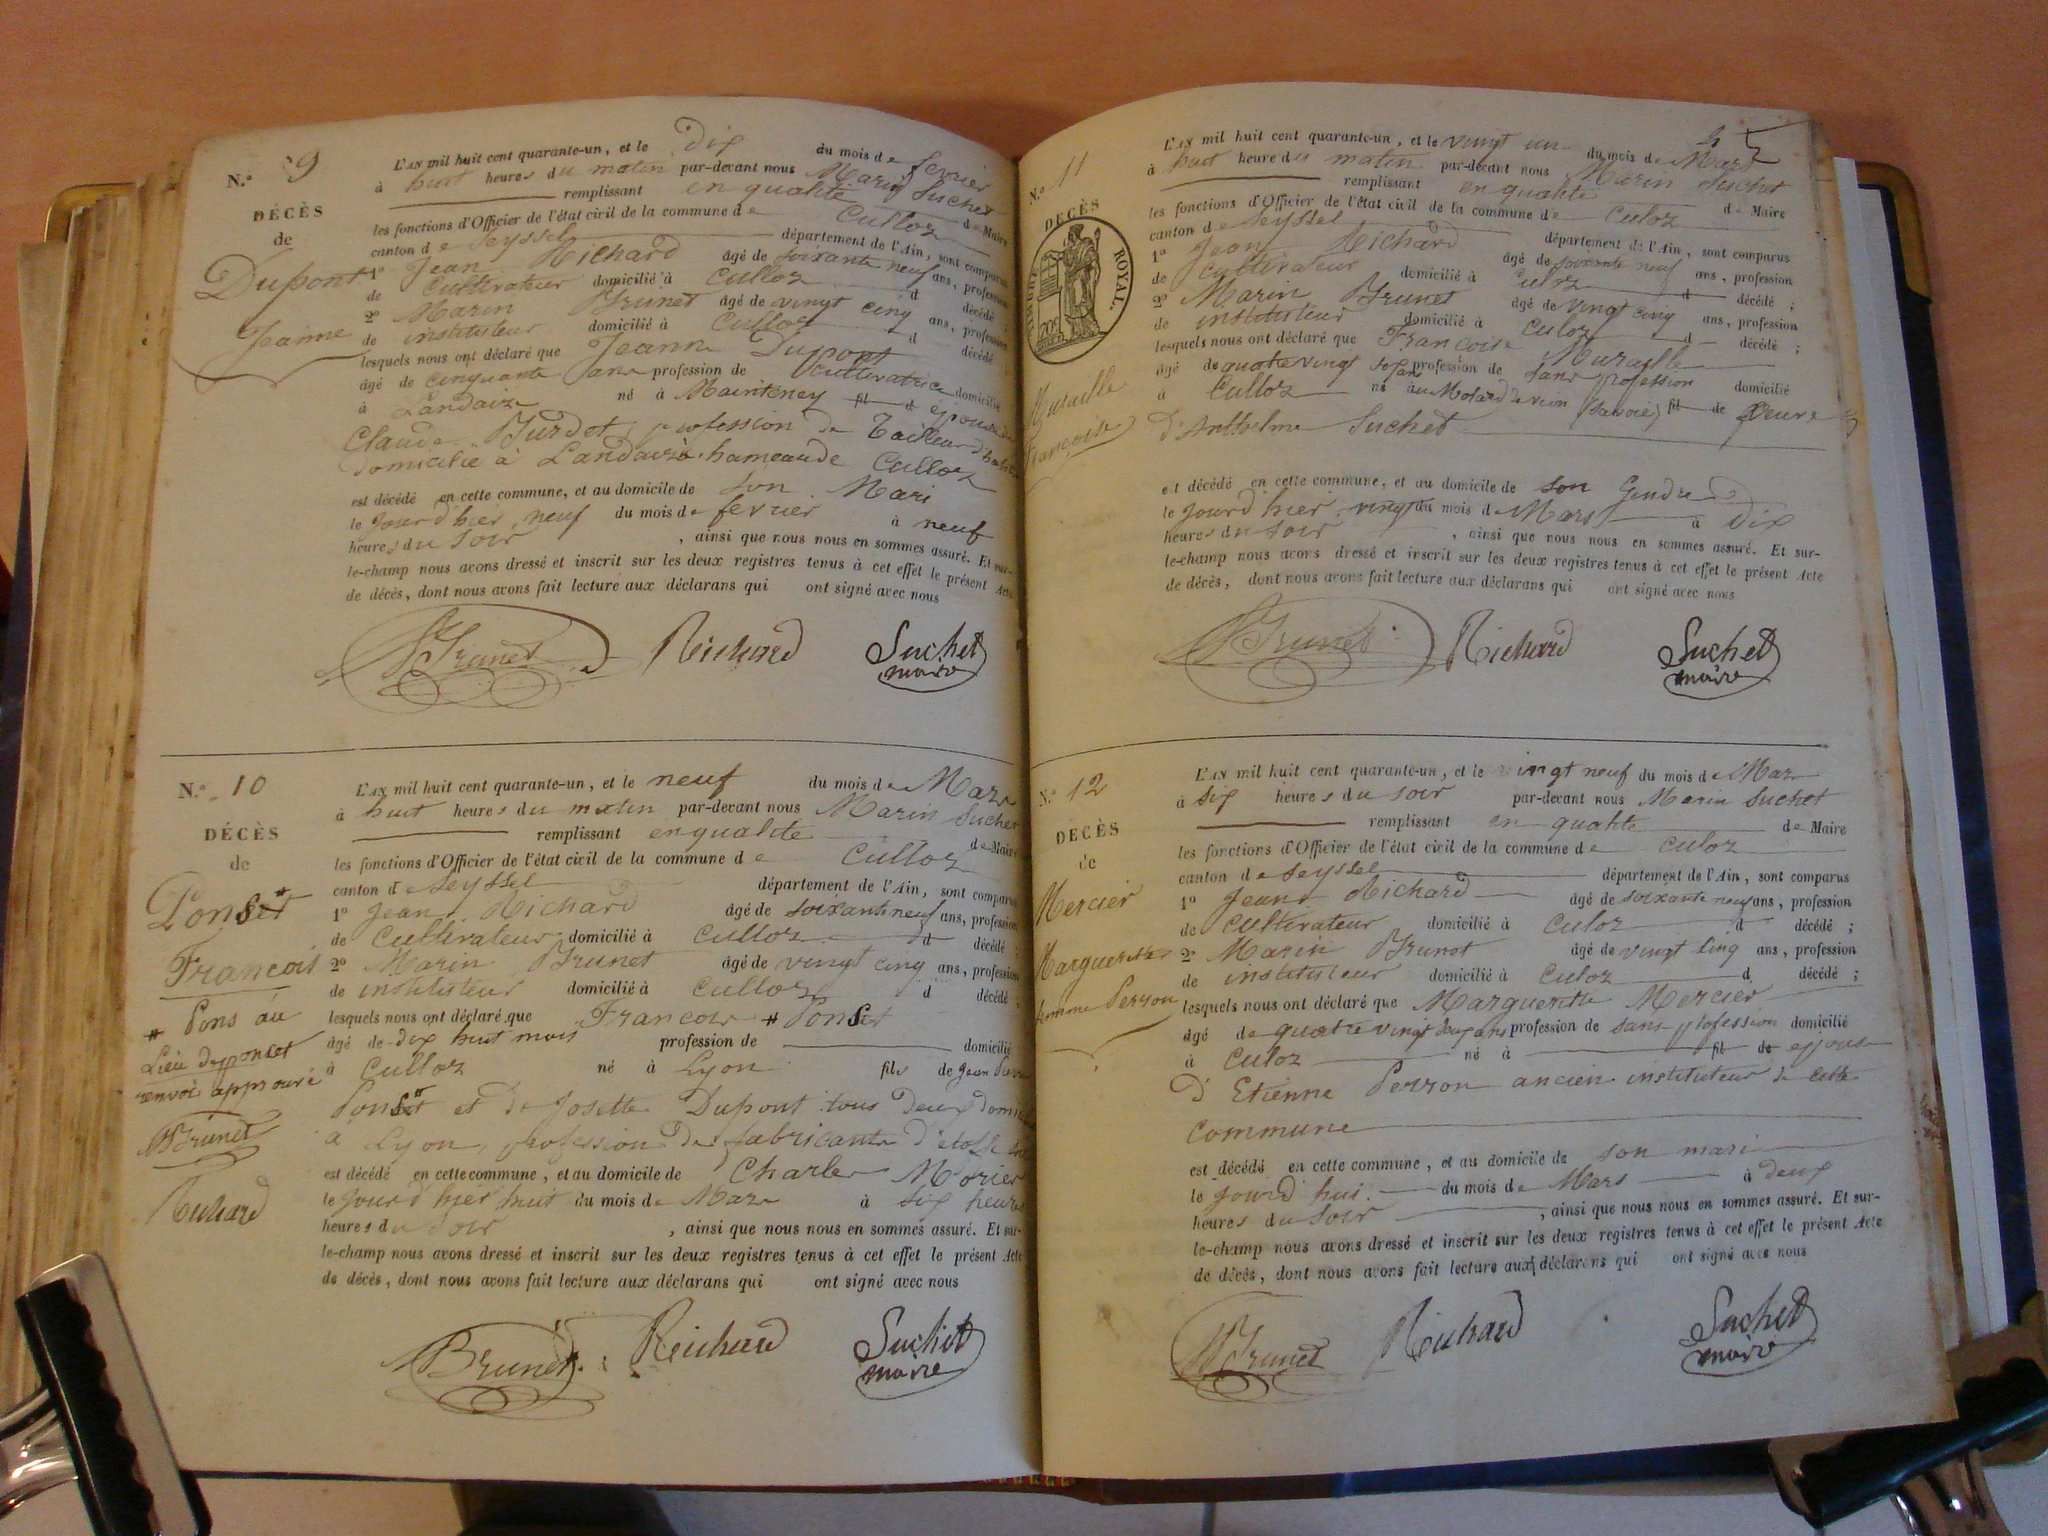 N.º 9
DÉCÈS
de
Dupont
Jeanne
L'AN mil huit cent quarante-un, et le Dix du mois de fevrier
à huit heures du matin par-devant nous Marin Suchet
remplissant en qualité de Maire
les fonctions d'Officier de l'état civil de la commune de Culloz
canton de Seyssel département de l'Ain, sont comparus
1º Jean Richard âgé de soixante neuf ans, profession
de Cultivateur domicilié à Culloz d décédé ;
2º Marin Brunet âgé de vingt cinq ans, profession
de instituteur domicilié à Culloz d décédé
lesquels nous ont déclaré que Jeanne Dupont
âgé de cinquante ans profession de Cultivatrice domicilié
à Landaize né à fil d epouse de
Claude Burdet, profession de Tailleur
domicilié à Landaize hameau de Culloz
est décédé en cette commune, et au domicile de son Mari
le jourd'hier, neuf du mois de fevrier à neuf
heures du soir , ainsi que nous nous en sommes assuré. Et sur-
le-champ nous avons dressé et inscrit sur les deux registres tenus à cet effet le présent Acte
de décès, dont nous avons fait lecture aux déclarans qui ont signé avec nous
Brunet Richard Suchet
maire
N.º 10
DÉCÈS
de
Ponset
François
# Pons au
Lieu de ponset
renvoi approuvé
Brunet
Richard
L'AN mil huit cent quarante-un, et le neuf du mois de Mars
à huit heures du matin par-devant nous Marin Suchet
remplissant en qualité de Maire
les fonctions d'Officier de l'état civil de la commune de Culloz
canton de Seyssel département de l'Ain, sont comparus
1º Jean Richard âgé de soixante neuf ans, profession
de Cultivateur domicilié à Culloz d décédé ;
2º Marin Brunet âgé de vingt cinq ans, profession
de instituteur domicilié à Culloz d décédé ;
lesquels nous ont déclaré que Francois # Ponset
âgé de dix huit mois profession de domicilié
à Culloz né à Lyon fils de Jean Pierre
Ponset # et de Josette Dupont tous deux
à Lyon, profession de fabricants d'étoffe
est décédé en cette commune, et au domicile de Charles Morier
le jourd'hier huit du mois de Mars à six heures
heures du soir , ainsi que nous nous en sommes assuré. Et sur-
le-champ nous avons dressé et inscrit sur les deux registres tenus à cet effet le présent Acte
de décès, dont nous avons fait lecture aux déclarans qui ont signé avec nous
Brunet Richard Suchet
maire
N.º 11
DÉCÈS
TIMBRE ROYAL.
Muraille
Françoise
5
L'AN mil huit cent quarante-un, et le vingt un du mois de Mars
à huit heure du matin par-devant nous Marin Suchet
remplissant en qualité de Maire
les fonctions d'Officier de l'état civil de la commune de Culoz
canton de Seyssel département de l'Ain, sont comparus
1º Jean Richard âgé de soixante neuf ans, profession
de Cultivateur domicilié à Culoz d décédé ;
2º Marin Brunet âgé de vingt cinq ans, profession
de instituteur domicilié à Culoz d décédé ;
lesquels nous ont déclaré que Francoise Muraille
âgé de quatre vingt profession de sans profession domicilié
à Culloz né au Molard de vion (savoie) fil de Veuve
d'Anthelme Suchet
est décédé en cette commune, et au domicile de son Gendre
le jourd'hier, vingt du mois de Mars à Dix
heures du soir , ainsi que nous nous en sommes assuré. Et sur-
le-champ nous avons dressé et inscrit sur les deux registres tenus à cet effet le présent Acte
de décès, dont nous avons fait lecture aux déclarans qui ont signé avec nous
Brunet Richard Suchet
maire
N.º 12
DÉCÈS
de
Mercier
Marguerithe
femme Perron
L'AN mil huit cent quarante-un, et le vingt neuf du mois de Mars
à six heures du soir par-devant nous Marin Suchet
remplissant en qualité de Maire
les fonctions d'Officier de l'état civil de la commune de Culoz
canton de Seyssel département de l'Ain, sont comparus
1º Jean Richard âgé de soixante neuf ans, profession
de Cultivateur domicilié à Culoz d décédé ;
2º Marin Brunet âgé de vingt cinq ans, profession
de instituteur domicilié à Culoz d décédé ;
lesquels nous ont déclaré que Marguerithe Mercier
âgé de quatre vingt deux ans profession de sans profession domicilié
à Culoz né à fil de epouse
d'Etienne Perron ancien instituteur de cette
commune
est décédé en cette commune, et au domicile de son mari
le jourd'hui du mois de Mars à deux
heures du soir , ainsi que nous nous en sommes assuré. Et sur-
le-champ nous avons dressé et inscrit sur les deux registres tenus à cet effet le présent Acte
de décès, dont nous avons fait lecture aux déclarans qui ont signé avec nous
Brunet Richard Suchet
maire